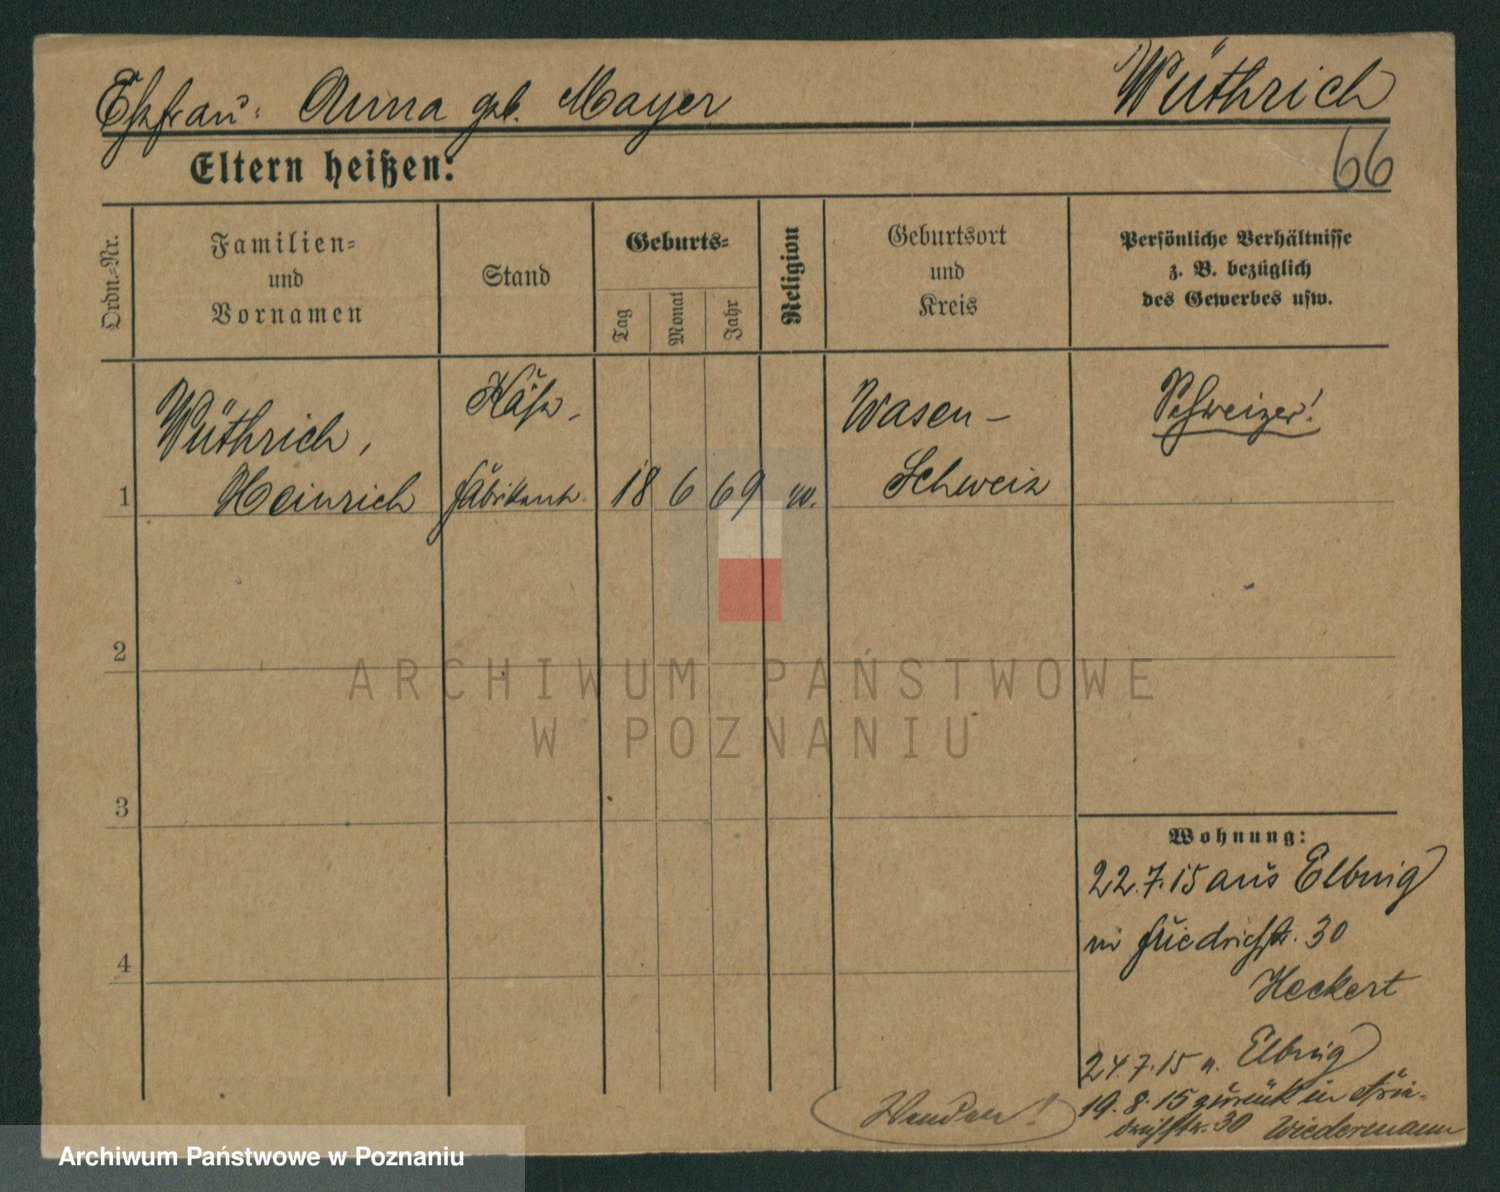 Ehefrau: Anna geb. Mayer
Wüthrich
66
Eltern heißen:
Ordn.-Nr.
Familien-
und
Vornamen
Stand
Geburts-
Tag
Monat
Jahr
Religion
Geburtsort
und
Kreis
Persönliche Verhältnisse
z. B. bezüglich
des Gewerbes usw.
1
Wüthrich,
Heinrich
Käse-
fabrikant
18
6
69
Wasen –
Schweiz
Schweizer!
2
ARCHIWUM PAŃSTWOWE
W POZNANIU
3
4
Wohnung:
22.7.15 aus Elbing
in Friedrichstr. 30
Heckert
24.7.15 n. Elbing
19.8.15 zurück in Frie-
drichstr. 30 Wiedermann
Wenden!
Archiwum Państwowe w Poznaniu